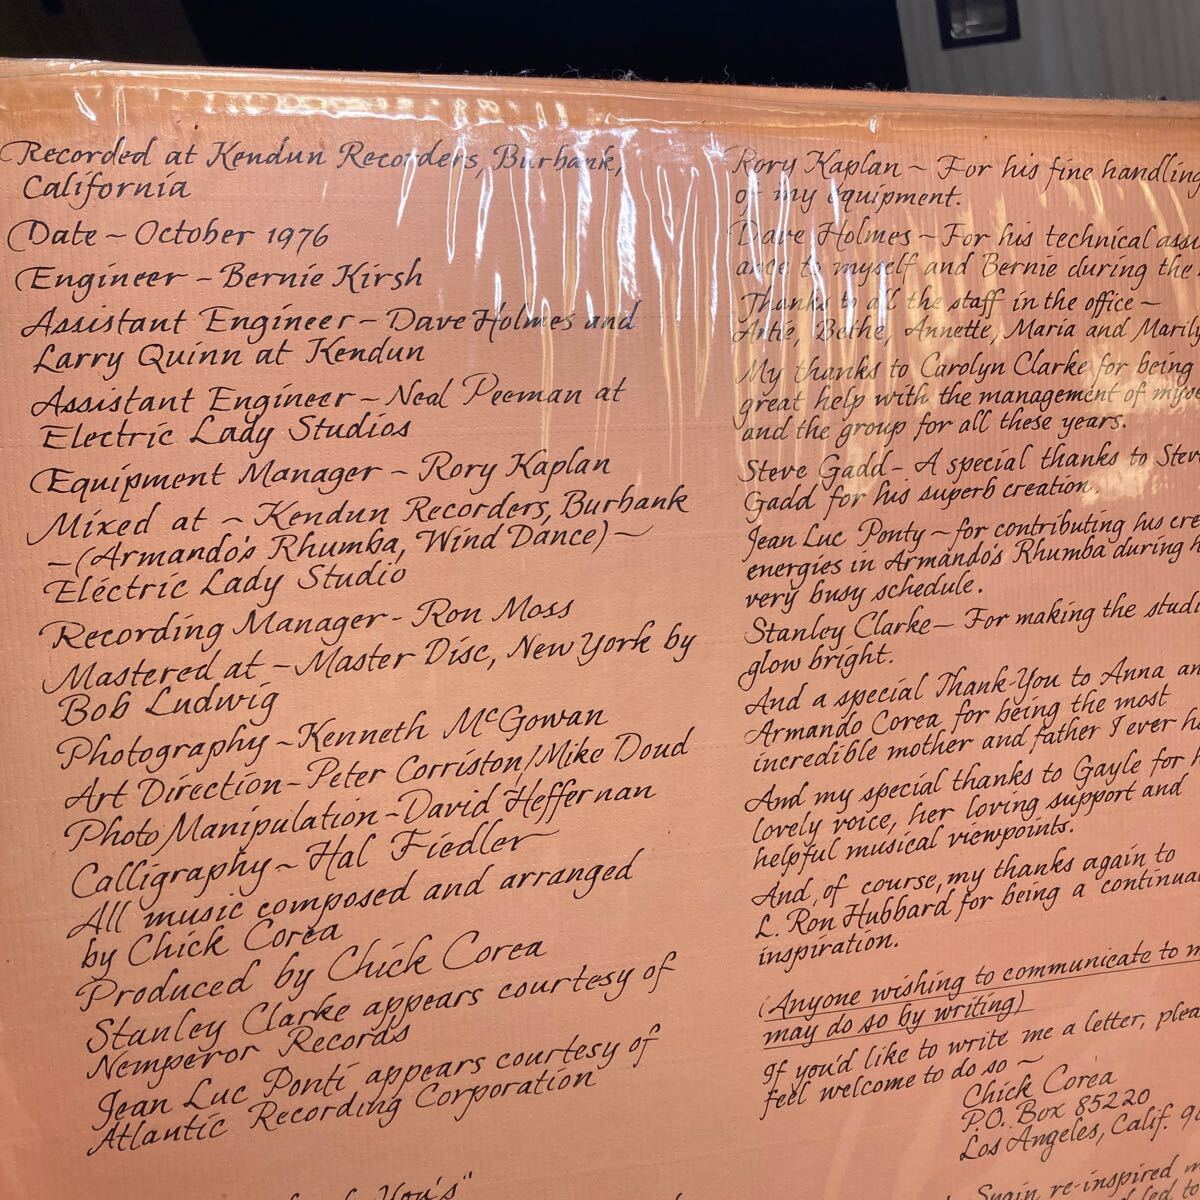 Recorded at Kendun Recorders, Burbank,
California
Date ~ October 1976
Engineer ~ Bernie Kirsh
Assistant Engineer ~ Dave Holmes and
Larry Quinn at Kendun
Assistant Engineer ~ Neal Peeman at
Electric Lady Studios
Equipment Manager ~ Rory Kaplan
Mixed at ~ Kendun Recorders, Burbank
~ (Armando's Rhumba, Wind Dance) ~
Electric Lady Studio
Recording Manager - Ron Moss
Mastered at ~ Master Disc, New York by
Bob Ludwig
Photography ~ Kenneth McGowan
Art Direction ~ Peter Corriston/Mike Doud
Photo Manipulation ~ David Heffernan
Calligraphy ~ Hal Fiedler
All music composed and arranged
by Chick Corea
Produced by Chick Corea
Stanley Clarke appears courtesy of
Nemperor Records
Jean Luc Ponti appears courtesy of
Atlantic Recording Corporation
You's"
Rory Kaplan ~ For his fine handling
of my equipment.
Dave Holmes ~ For his technical
ance to myself and Bernie during the
Thanks to all the staff in the office ~
Artie, Bethe, Annette, Maria and
My thanks to Carolyn Clarke for being
great help with the management of
and the group for all these years.
Steve Gadd - A special thanks to
Gadd for his superb creation.
Jean Luc Ponty ~ for contributing his
energies in Armando's Rhumba during
very busy schedule.
Stanley Clarke ~ For making the
glow bright.
And a special Thank-You to Anna
Armando Corea for being the most
incredible mother and father I ever
And my special thanks to Gayle for
lovely voice, her loving support and
helpful musical viewpoints.
And, of course, my thanks again to
L. Ron Hubbard for being a
inspiration.
(Anyone wishing to communicate to
may do so by writing)
If you'd like to write me a letter,
feel welcome to do so ~
Chick Corea
P.O. Box 85220
Los Angeles, Calif.
Spain re-inspired